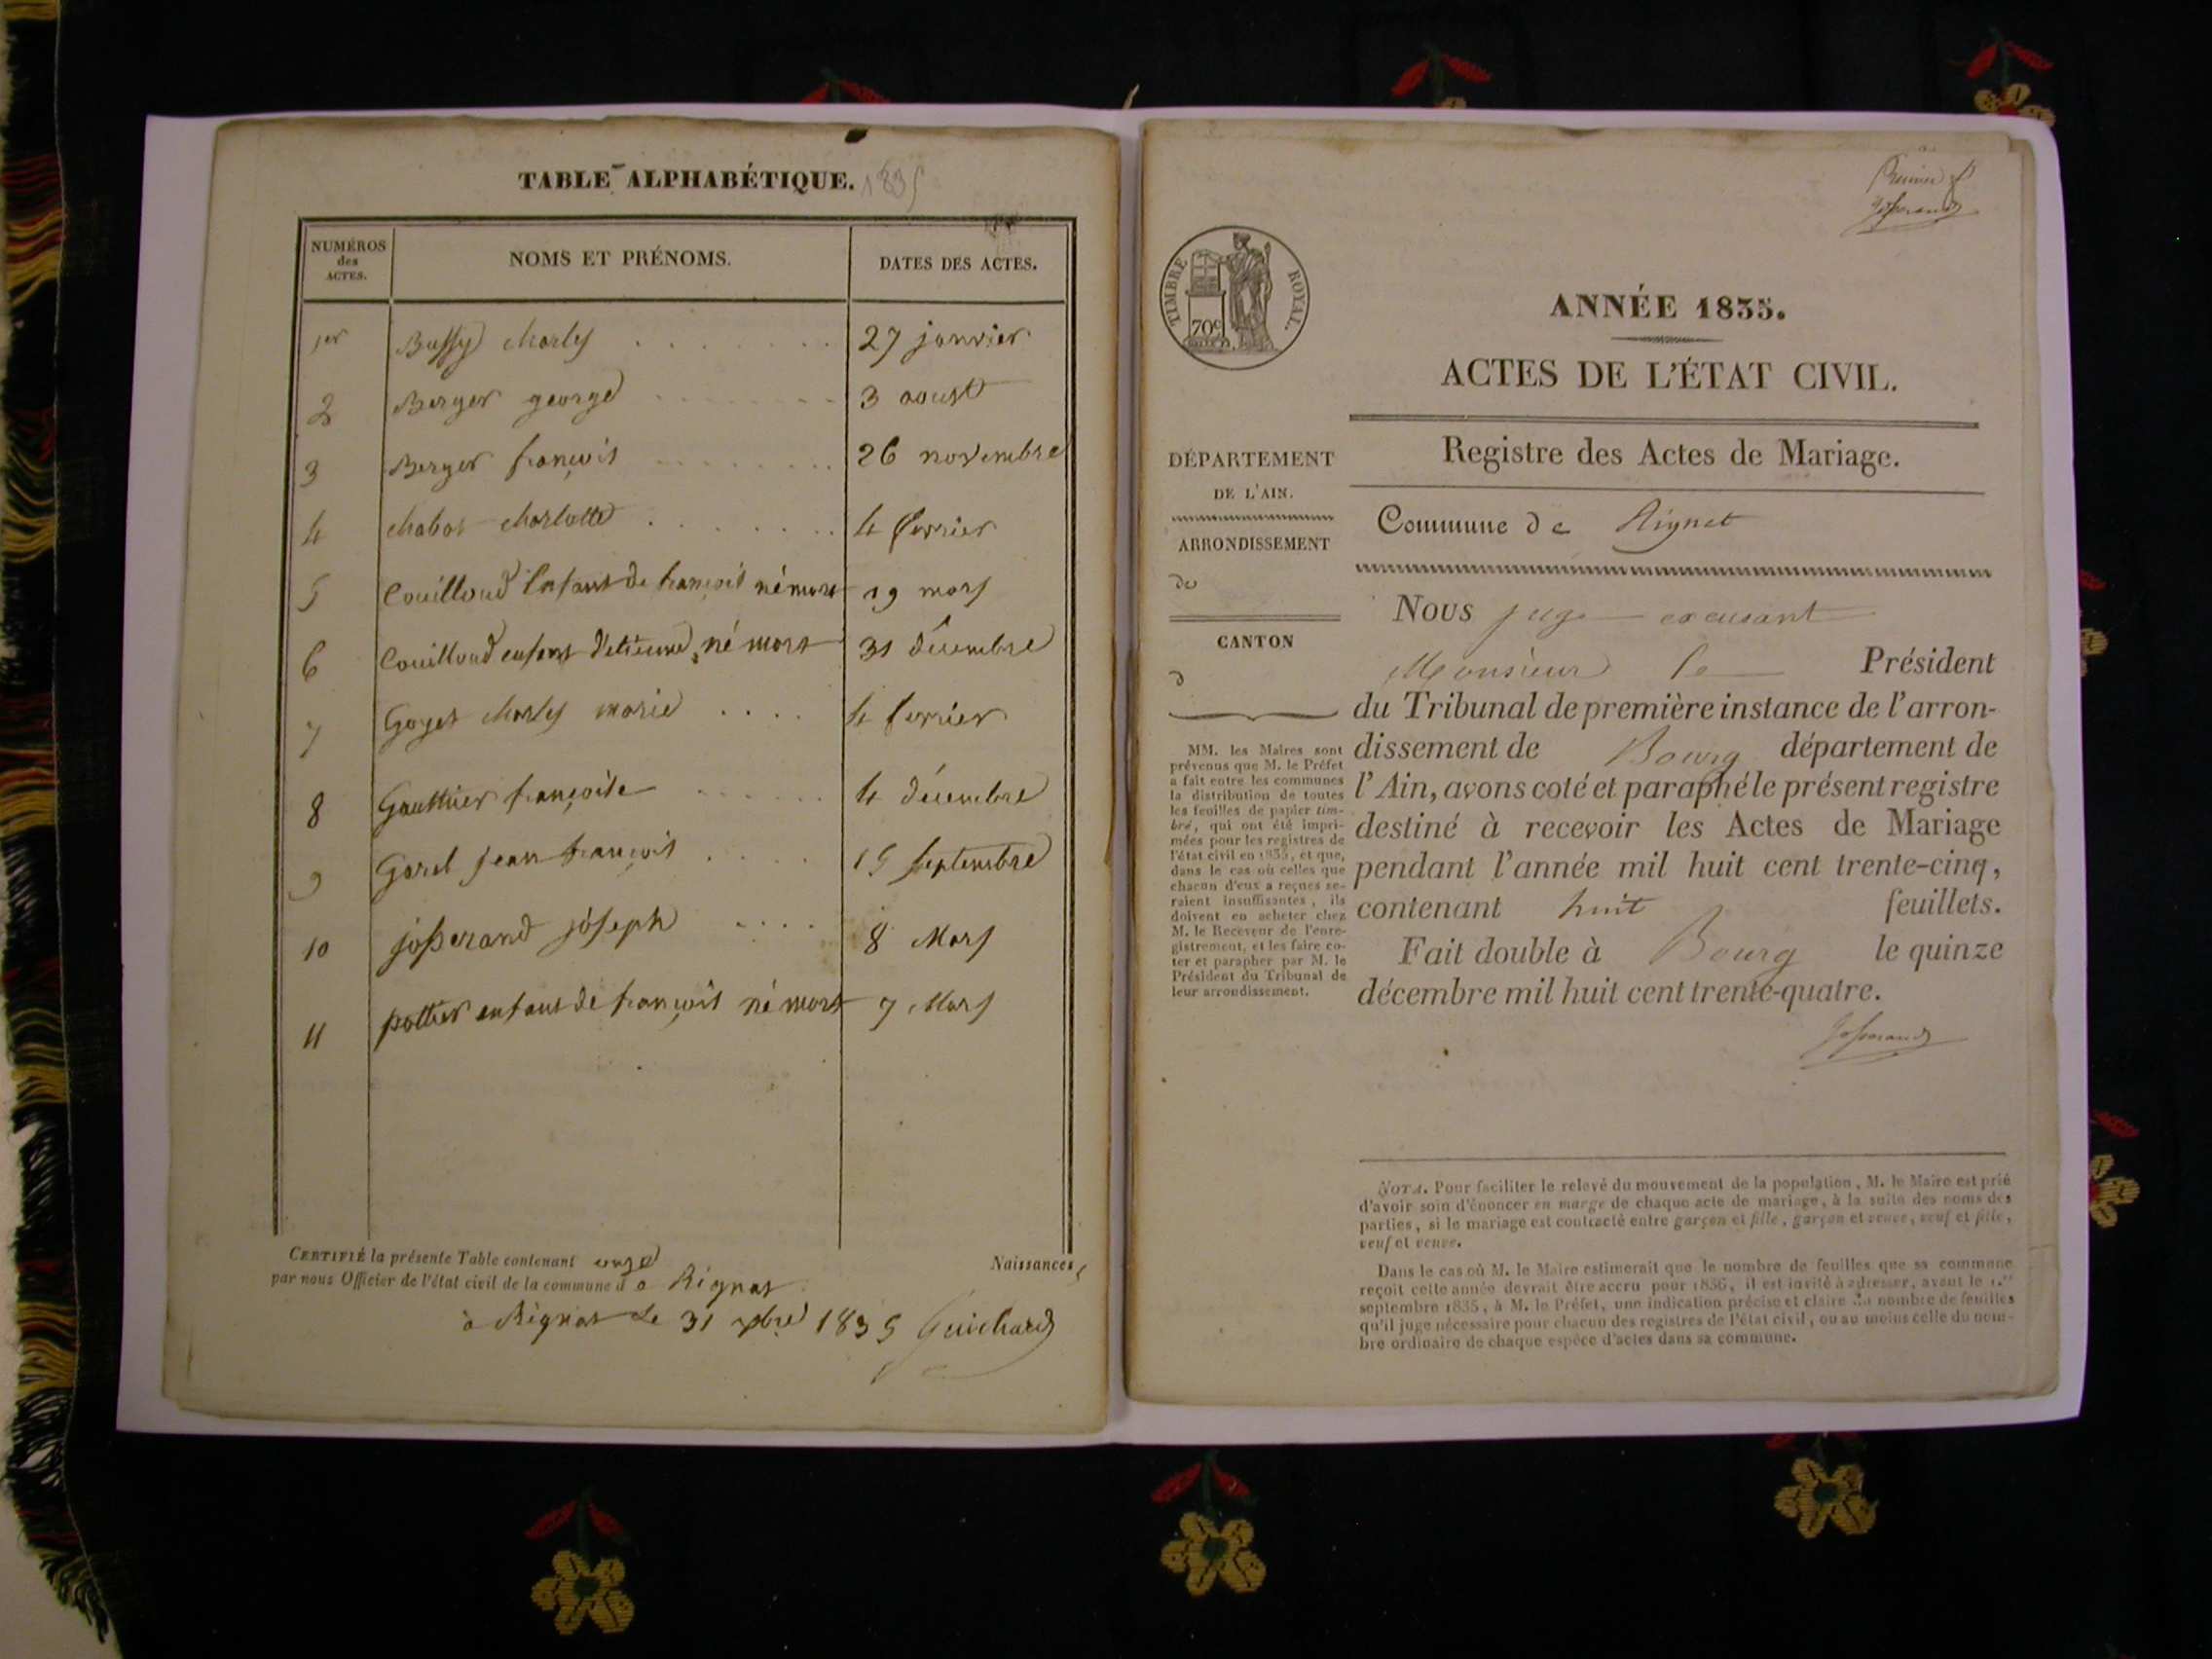 TABLE ALPHABÉTIQUE. 1835
NUMÉROS des ACTES.
NOMS ET PRÉNOMS.
DATES DES ACTES.
1er Bussy Charles 27 janvier
2 Berger george 3 aoust
3 Berger françois 26 novembre
4 Chabot Charlotte 4 fevrier
5 Couilloud Enfant de françois né mort 19 mars
6 Couilloud enfant d'etienne né mort 31 décembre
7 Goyet Charles marie 4 fevrier
8 Gauthier françoise 4 décembre
9 Gorel jean françois 15 septembre
10 josserand joseph 8 Mars
11 pottier enfant de françois né mort 7 Mars
CERTIFIÉ la présente Table contenant onze Naissances,
par nous Officier de l'état civil de la commune d e Rignat
à Rignat le 31 xbre 1835 Guichard
Premier f
Josserand
TIMBRE ROYAL.
70c
ANNÉE 1835.
ACTES DE L'ÉTAT CIVIL.
Registre des Actes de Mariage.
DÉPARTEMENT
DE L'AIN.
ARRONDISSEMENT
de
CANTON
d
MM. les Maires sont
prévenus que M. le Préfet
a fait entre les communes
la distribution de toutes
les feuilles de papier tim-
bré, qui ont été impri-
mées pour les registres de
l'état civil en 1835, et que,
dans le cas où celles que
chacun d'eux a reçues se-
raient insuffisantes, ils
doivent en acheter chez
M. le Receveur de l'enre-
gistrement, et les faire co-
ter et parapher par M. le
Président du Tribunal de
leur arrondissement.
Commune de Rignat
Nous juge excusant
Monsieur le Président
du Tribunal de première instance de l'arron-
dissement de Bourg département de
l'Ain, avons coté et paraphé le présent registre
destiné à recevoir les Actes de Mariage
pendant l'année mil huit cent trente-cinq,
contenant huit feuillets.
Fait double à Bourg le quinze
décembre mil huit cent trente-quatre.
Josserand
NOTA. Pour faciliter le relevé du mouvement de la population, M. le Maire est prié
d'avoir soin d'énoncer en marge de chaque acte de mariage, à la suite des noms des
parties, si le mariage est contracté entre garçon et fille, garçon et veuve, veuf et fille,
veuf et veuve.
Dans le cas où M. le Maire estimerait que le nombre de feuilles que sa commune
reçoit cette année devrait être accru pour 1836, il est invité à adresser, avant le 1.er
septembre 1835, à M. le Préfet, une indication précise et claire du nombre de feuilles
qu'il juge nécessaire pour chacun des registres de l'état civil, ou au moins celle du nom-
bre ordinaire de chaque espèce d'actes dans sa commune.